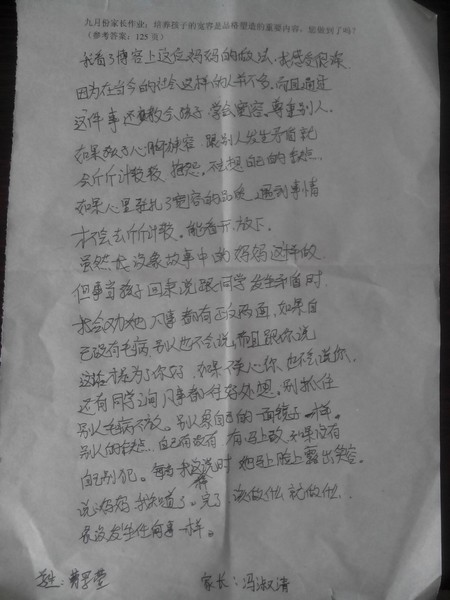 九月份家长作业：培养孩子的宽容是品格塑造的重要内容，您做到了吗？
（参考答案：125 页）
我看了博客上这位妈妈的做法，我感受很深.
因为在当今的社会这样的人并不多，而且通过
这件事还教会孩子学会宽容，尊重别人.
如果孩子心胸狭窄 跟别人发生矛盾就
会斤斤计较 抱怨，不想自己的缺点.
如果心里要扎了宽容的品质，遇到事情
才不会去斤斤计较，能看开，放下.
虽然我没象故事中的妈妈这样做.
但事当孩子回来说跟同学发生矛盾时
我会劝她 凡事都有正反两面，如果自
己没有毛病，别人也不会说，而且跟你说
这话才是为了你好，如果不关心你，也不会说你.
还有同学之间凡事都往好处想，别抓住
别人毛病不放。别人象自己的一面镜子一样。
别人的缺点 自己有没有 有马上改，如果没有
自己别犯。每当我这样说时 她马上脸上露出笑容.
说：妈妈 我知道了。完了 该做什么就做什么.
象没发生任何事一样。
家长：冯淑清